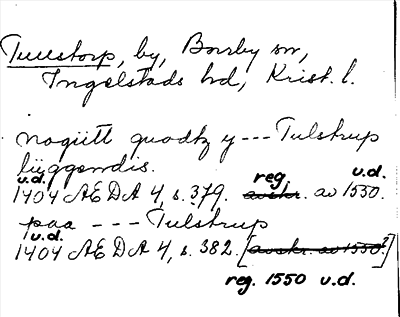 Tullstorp, by, Borrby sn,
Ingelstads hd, Krist. l.
nogütt quodtz y --- Tulstrup
lüggendis.
u.d. reg. u.d.
1404 AEDA 4, s. 379. avskr. av 1550.
paa --- Tulstrup
u.d.
1404 AEDA 4, s. 382. [avskr. av 1550?]
reg. 1550 u.d.